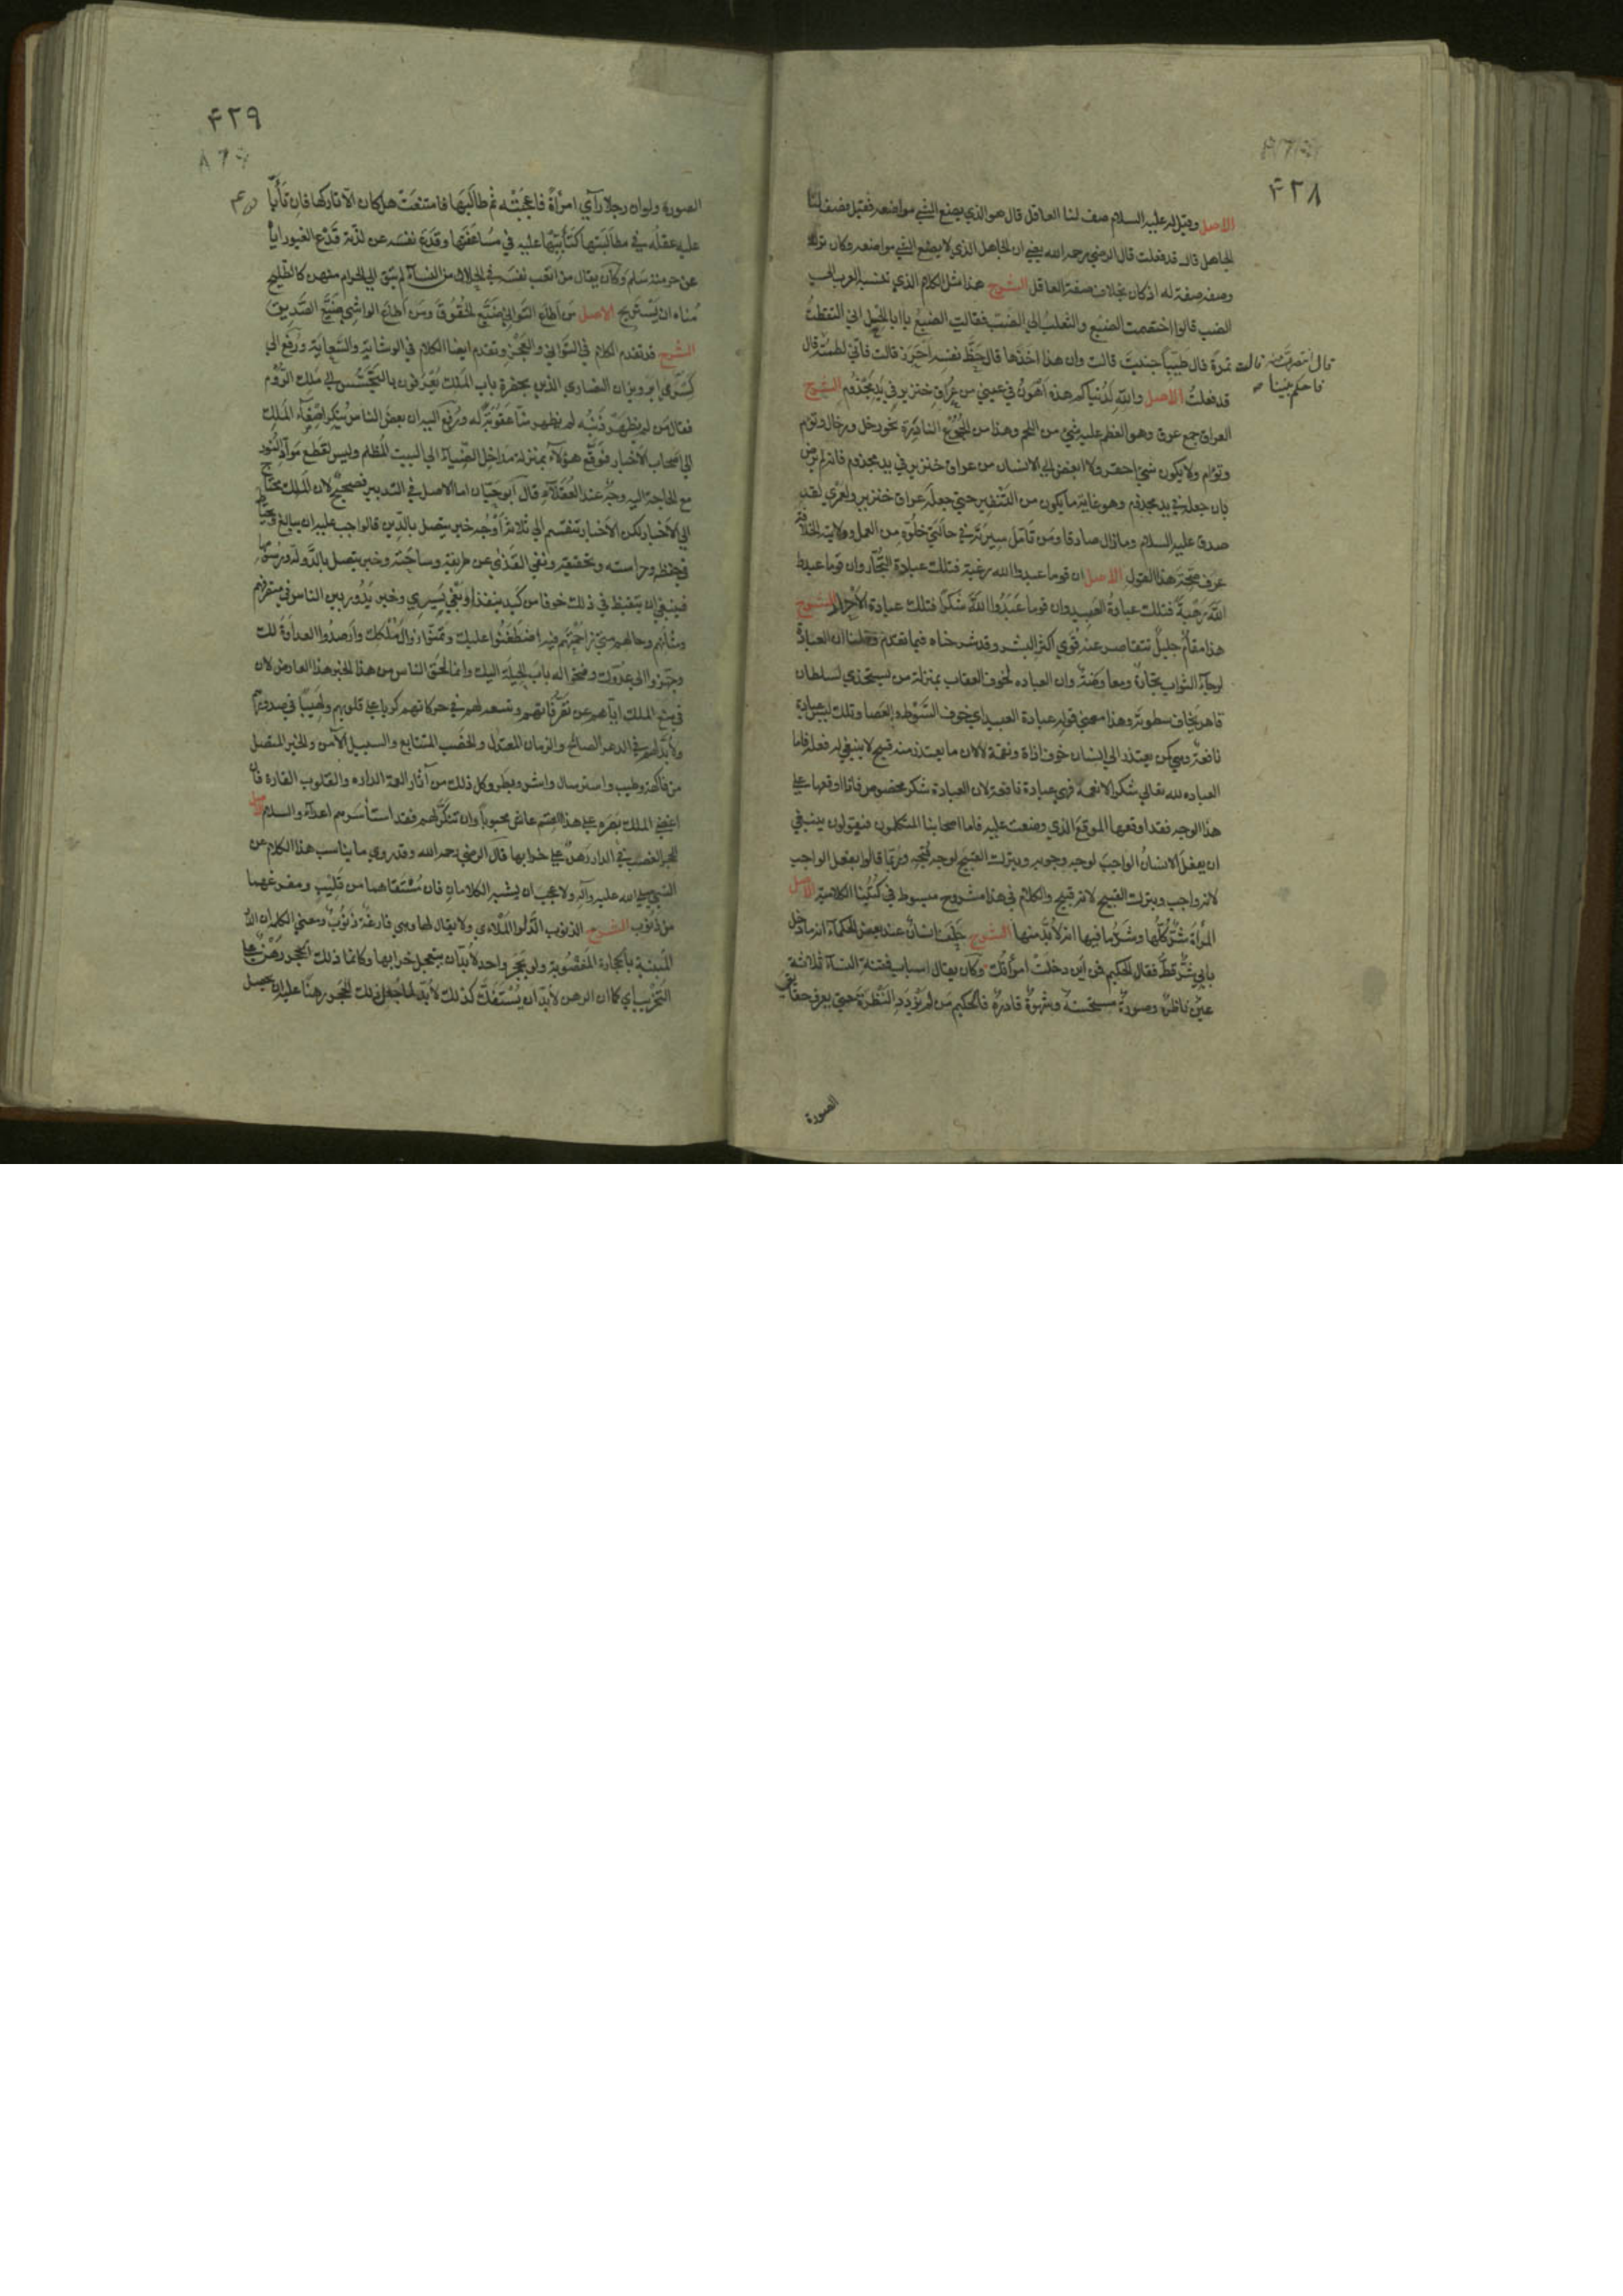 ۴۲۸
الاصل وقيل له عليه السلام صف لنا العاقل قال هو الذي يضع الشي مواضعه فقيل فصف لنا
الجاهل قال قد فعلت قال الرضي رحمه الله يعني ان الجاهل الذي لا يضع الشي مواضعه فكان ترك
وصفه صفة له اذ كان بخلاف صفة العاقل الشرح هذا مثل الكلام الذي تنسبه العرب الي
الضب قالوا اختصمت الضبع والثعلب الي الضب فقالت الضبع يا ابا الحسل اني التقطت
تمرة قال طيبا جنيت قالت وان هذا اخذها قال حظ نفسه احرز قالت فاني لطمته قال
قال انتصرت قالت
فاحكم بيننا
قد فعلت الاصل والله لدنياكم هذه اهون في عيني من عراق خنزير في يد مجذوم الشرح
العراق جمع عرق وهو العظم عليه شي من اللحم وهذا من الجموع النادرة نحو رخل ورخال وتوم
وتوام ولا يكون شي احقر ولا ابغض الي الانسان من عراق خنزير في يد مجذوم فانه لم يرض
بان جعله في يد مجذوم وهو غاية ما يكون من التنفير حتي جعله عراق خنزير ولعمري لقد
صدق عليه السلام وما زال صادقا ومن تامل سيرته في حالتي خلوه من العمل وولايته الخلافة
عرف صحة هذا القول الاصل ان قوما عبدوا الله رغبة فتلك عبادة التجار وان قوما عبدوا
الله رهبة فتلك عبادة العبيد وان قوما عبدوا الله شكرا فتلك عبادة الاحرار الشرح
هذا مقام جليل تتقاصر عنه قوي اكثر البشر وقد شرحناه فيما تقدم وقلنا ان العبادة
لرجاء الثواب تجارة ومعاوضة وان العباده لخوف العقاب بمنزلة من يستخذي لسلطان
قاهر يخاف سطوته وهذا معني قوله عبادة العبيد اي خوف السوط والعصا وتلك ليست عبادة
نافعة وهي كمن يعتذر الي انسان خوف اذاه ونقمته لا لان ما يعتذر منه قبيح لا ينبغي له فعله فاما
العباده لله تعالي شكرا لانعمه فهي عبادة نافعة لان العبادة شكر مخصوص فاذا اوقعها علي
هذا الوجه فقد اوقعها الموقع الذي وضعت عليه فاما اصحابنا المتكلمون فيقولون ينبغي
ان يفعل الانسان الواجب لوجه وجوبه ويترك القبيح لوجه قبحه وربما قالوا يفعل الواجب
لانه واجب ويترك القبيح لانه قبيح والكلام في هذا مشروح مبسوط في كتبنا الكلامية الاصل
المراة شر كلها وشر ما فيها انه لا بد منها الشرح حلف انسان عند بعض الحكماء انه ما دخل
بابي شر قط فقال الحكيم فمن اين دخلت امراتك وكان يقال اسباب فتنة النساء ثلاثة
عين ناظرة وصورة مستحسنة وشهوة قادرة فالحكيم من لم يردد النظرة حتي يعرف حقايق
الصورة
۴۲۹
الصورة ولو ان رجلا راي امراة فاعجبته ثم طالبها فامتنعت هل كان الا تاركها فان تابا
عليه عقله في مطالبتها كتابيها عليه في مساعفتها وقدع نفسه عن لذته قدع الغيور اياه
عن حرمته سلم وكان يقال من اتعب نفسه في الحلال من النساء لم يتق الي الحرام منهن كالطليح
مناه ان يستريح الاصل من اطاع التواني ضيع الحقوق ومن اطاع الواشي ضيع الصديق
الشرح قد تقدم الكلام في التواني والعجز وتقدم ايضا الكلام في الوشاية والسعاية ورفع الي
كسري ابرويز ان النصاري الذين بحضرة باب الملك يعرفون بالتجسس الي ملك الروم
فقال من لم يظهر له ذنب لم يظهر منا عقوبة له ورفع اليه ان بعض الناس ينكر اصغاء الملك
الي اصحاب الاخبار فوقع هولاء بمنزلة مداخل الضياء الي البيت المظلم وليس لقطع مواد النور
مع الحاجة اليه وجه عند العقلاء قال ابو حيان اما الاصل في التدبير فصحيح لان الملك محتاج
الي الاخبار لكن الاخبار تنقسم الي ثلاثة اوجه خبر يتصل بالدين فالواجب عليه ان يبالغ ويحتاط
في حفظه وحراسته وتحقيقه ونفي القذي عن طريقه وساحته وخبر يتصل بالدولة ورسومها
فينبغي ان يتيقظ في ذلك خوفا من كيد ينفذ او بغي يسري وخبر يدور بين الناس في متصرفهم
وشانهم وحالهم متي زاحمتهم فيه اضطغنوا عليك وتمنوا زوال ملكك وارصدوا العداوة لك
وجهروا الي عدوك وفتحوا له باب الحيلة اليك وانما لحق الناس من هذا الخبر هذا العارض لان
في منع الملك اياهم عن تصرفاتهم وتتبعه لهم في حركاتهم كربا علي قلوبهم ولهيبا في صدورهم
ولا بد لهم في الدهر الصالح والزمان المعتدل والخصب المتتابع والسبيل الآمن والخير المتصل
من فكاهة وطيب واسترسال واشر وبطر وكل ذلك من آثار النعمة الداره والقلوب القاره فان
اغضي الملك بصره علي هذا القسم عاش محبوبا وان تنكر لهم فقد استاسرهم اعداء والسلام الاصل
الحجر الغصب في الدار رهن علي خرابها قال الرضي رحمه الله وقد روي ما يناسب هذا الكلام عن
النبي صلي الله عليه وآله ولا عجب ان يشتبه الكلامان فان مستقاهما من قليب ومفرغهما
من ذنوب الشرح الذنوب الدلو الملاءي ولا يقال لها وهي فارغة ذنوب ومعني الكلمة ان الدار
المبنية بالحجارة المغصوبة ولو بحجر واحد لا بد ان يتعجل خرابها وكانما ذلك الحجر رهن علي
التخريب اي كما ان الرهن لا بد ان يستفك كذلك لا بد لما جعل ذلك الحجر رهنا عليه ان يحصل